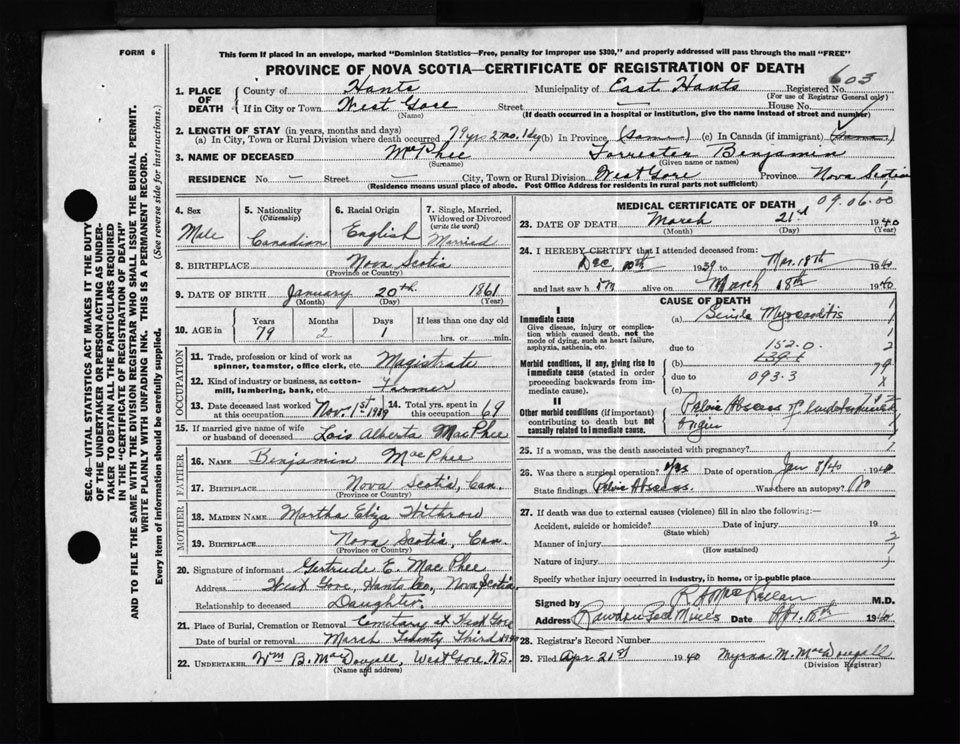 FORM 6
This form if placed in an envelope, marked "Dominion Statistics—Free, penalty for improper use $300," and properly addressed will pass through the mail "FREE"
PROVINCE OF NOVA SCOTIA—CERTIFICATE OF REGISTRATION OF DEATH
603
1. PLACE OF DEATH County of Hants Municipality of East Hants Registered No.
(For use of Registrar General only)
If in City or Town West Gore Street — House No.
(Name) (If death occurred in a hospital or institution, give the name instead of street and number)
2. LENGTH OF STAY (in years, months and days)
(a) In City, Town or Rural Division where death occurred 79 yrs 2 mo. 1 day (b) In Province (Same) (c) In Canada (if immigrant) (Same)
3. NAME OF DECEASED MacPhee Forrester Benjamin
(Surname) (Given name or names)
RESIDENCE No. — Street — City, Town or Rural Division West Gore Province Nova Scotia
(Residence means usual place of abode. Post Office Address for residents in rural parts not sufficient)
4. Sex Male
5. Nationality (Citizenship) Canadian
6. Racial Origin English
7. Single, Married, Widowed or Divorced (write the word) Married
8. BIRTHPLACE Nova Scotia
(Province or Country)
9. DATE OF BIRTH January 20th 1861
(Month) (Day) (Year)
10. AGE in Years Months Days If less than one day old
79 2 1 hrs. or min.
OCCUPATION
11. Trade, profession or kind of work as spinner, teamster, office clerk, etc. Magistrate
12. Kind of industry or business, as cotton-mill, lumbering, bank, etc. Farmer
13. Date deceased last worked at this occupation Nov. 1st 1939
14. Total yrs. spent in this occupation 69
15. If married give name of wife or husband of deceased Lois Alberta MacPhee
FATHER
16. NAME Benjamin MacPhee
17. BIRTHPLACE Nova Scotia, Can.
(Province or Country)
MOTHER
18. MAIDEN NAME Martha Eliza Withrow
19. BIRTHPLACE Nova Scotia, Can.
(Province or Country)
20. Signature of informant Gertrude E. MacPhee
Address West Gore, Hants Co., Nova Scotia,
Relationship to deceased Daughter.
21. Place of Burial, Cremation or Removal Cemetary at West Gore
Date of burial or removal March Twenty Third 1940
22. UNDERTAKER Wm B. MacDougall, West Gore, N.S.
(Name and address)
MEDICAL CERTIFICATE OF DEATH 09.06.00
23. DATE OF DEATH March 21st 1940
(Month) (Day) (Year)
24. I HEREBY CERTIFY that I attended deceased from:
Dec. 1939 to Mar. 18th 1940
and last saw h im alive on March 18th 1940
CAUSE OF DEATH
I
Immediate cause (a) Senile Myocarditis
Give disease, injury or complication which caused death, not the mode of dying, such as heart failure, asphyxia, asthenia, etc.
due to 152.0
Morbid conditions, if any, giving rise to immediate cause (stated in order proceeding backwards from immediate cause).
(b)
due to 093.3
(c)
II
Other morbid conditions (if important) contributing to death but not causally related to immediate cause.
Pelvic Abscess of
origin
25. If a woman, was the death associated with pregnancy?
26. Was there a surgical operation? Yes Date of operation Jan 8/40 1940
State findings Pelvic Abscess. Was there an autopsy? No
27. If death was due to external causes (violence) fill in also the following:—
Accident, suicide or homicide? Date of injury 19
(State which)
Manner of injury
(How sustained)
Nature of injury
Specify whether injury occurred in industry, in home, or in public place
Signed by M.D.
Address Rawdon Gold Mines Date Apr. 1940
28. Registrar's Record Number
29. Filed Apr 21st 1940 Myrna M. MacDougall
(Division Registrar)
SEC. 46—VITAL STATISTICS ACT MAKES IT THE DUTY
OF THE UNDERTAKER OR PERSON ACTING AS UNDER-
TAKER TO OBTAIN ALL THE PARTICULARS REQUIRED
IN THE "CERTIFICATE OF REGISTRATION OF DEATH"
AND TO FILE THE SAME WITH THE DIVISION REGISTRAR WHO SHALL ISSUE THE BURIAL PERMIT.
WRITE PLAINLY WITH UNFADING INK. THIS IS A PERMANENT RECORD.
Every item of information should be carefully supplied. (See reverse side for instructions.)